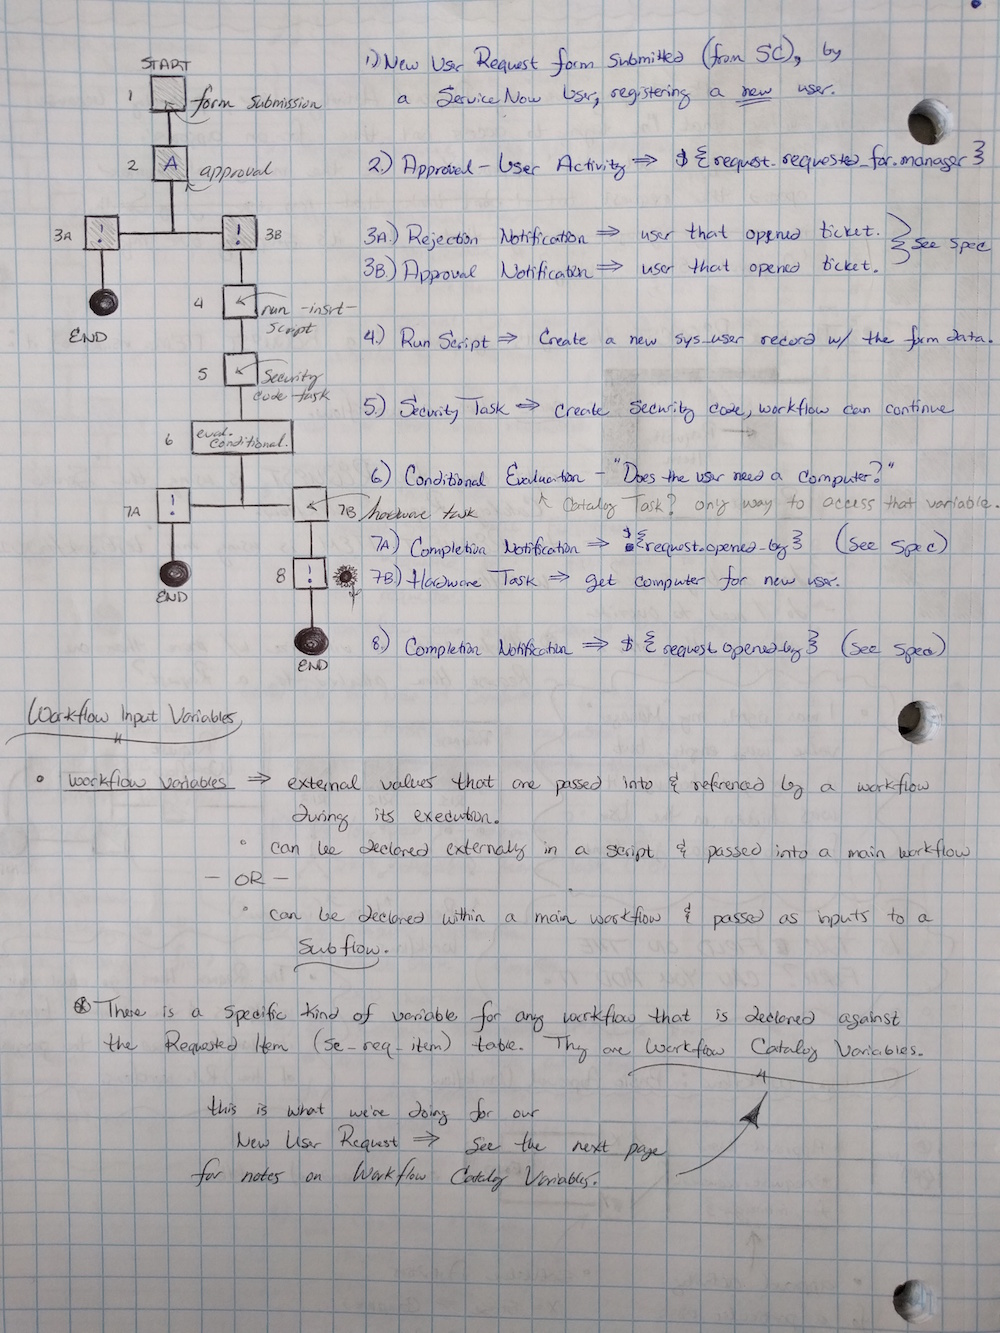 START
1
form submission
2
A
approval
3A
!
!
3B
END
4
run-insrt-
script
5
Security
code task
6
eval.
conditional.
7A
!
7B
hardware task
END
8
!
END
1) New User Request form submitted (from SC), by
a ServiceNow User, registering a new user.
2.) Approval - User Activity ⇒ ${request.requested_for.manager}
3A.) Rejection Notification ⇒ user that opened ticket.
3B) Approval Notification ⇒ user that opened ticket.
See spec
4.) Run Script ⇒ Create a new sys_user record w/ the form data.
5.) Security Task ⇒ create security code, workflow can continue
6) Conditional Evaluation - "Does the user need a computer?"
↑ Catalog Task? only way to access that variable.
7A) Completion Notification ⇒ ${request.opened_by} (See Spec)
7B) Hardware Task ⇒ get computer for new user.
8.) Completion Notification ⇒ ${request.opened_by} (See Spec)
Workflow Input Variables
• Workflow Variables ⇒ external values that are passed into & referenced by a workflow
during its execution.
• can be declared externally in a script & passed into a main workflow
- OR -
• can be declared within a main workflow & passed as inputs to a
Subflow.
* There is a specific kind of variable for any workflow that is declared against
the Requested Item (sc_req_item) table. They are Workflow Catalog Variables.
this is what we're doing for our
New User Request ⇒ see the next page
for notes on Workflow Catalog Variables.